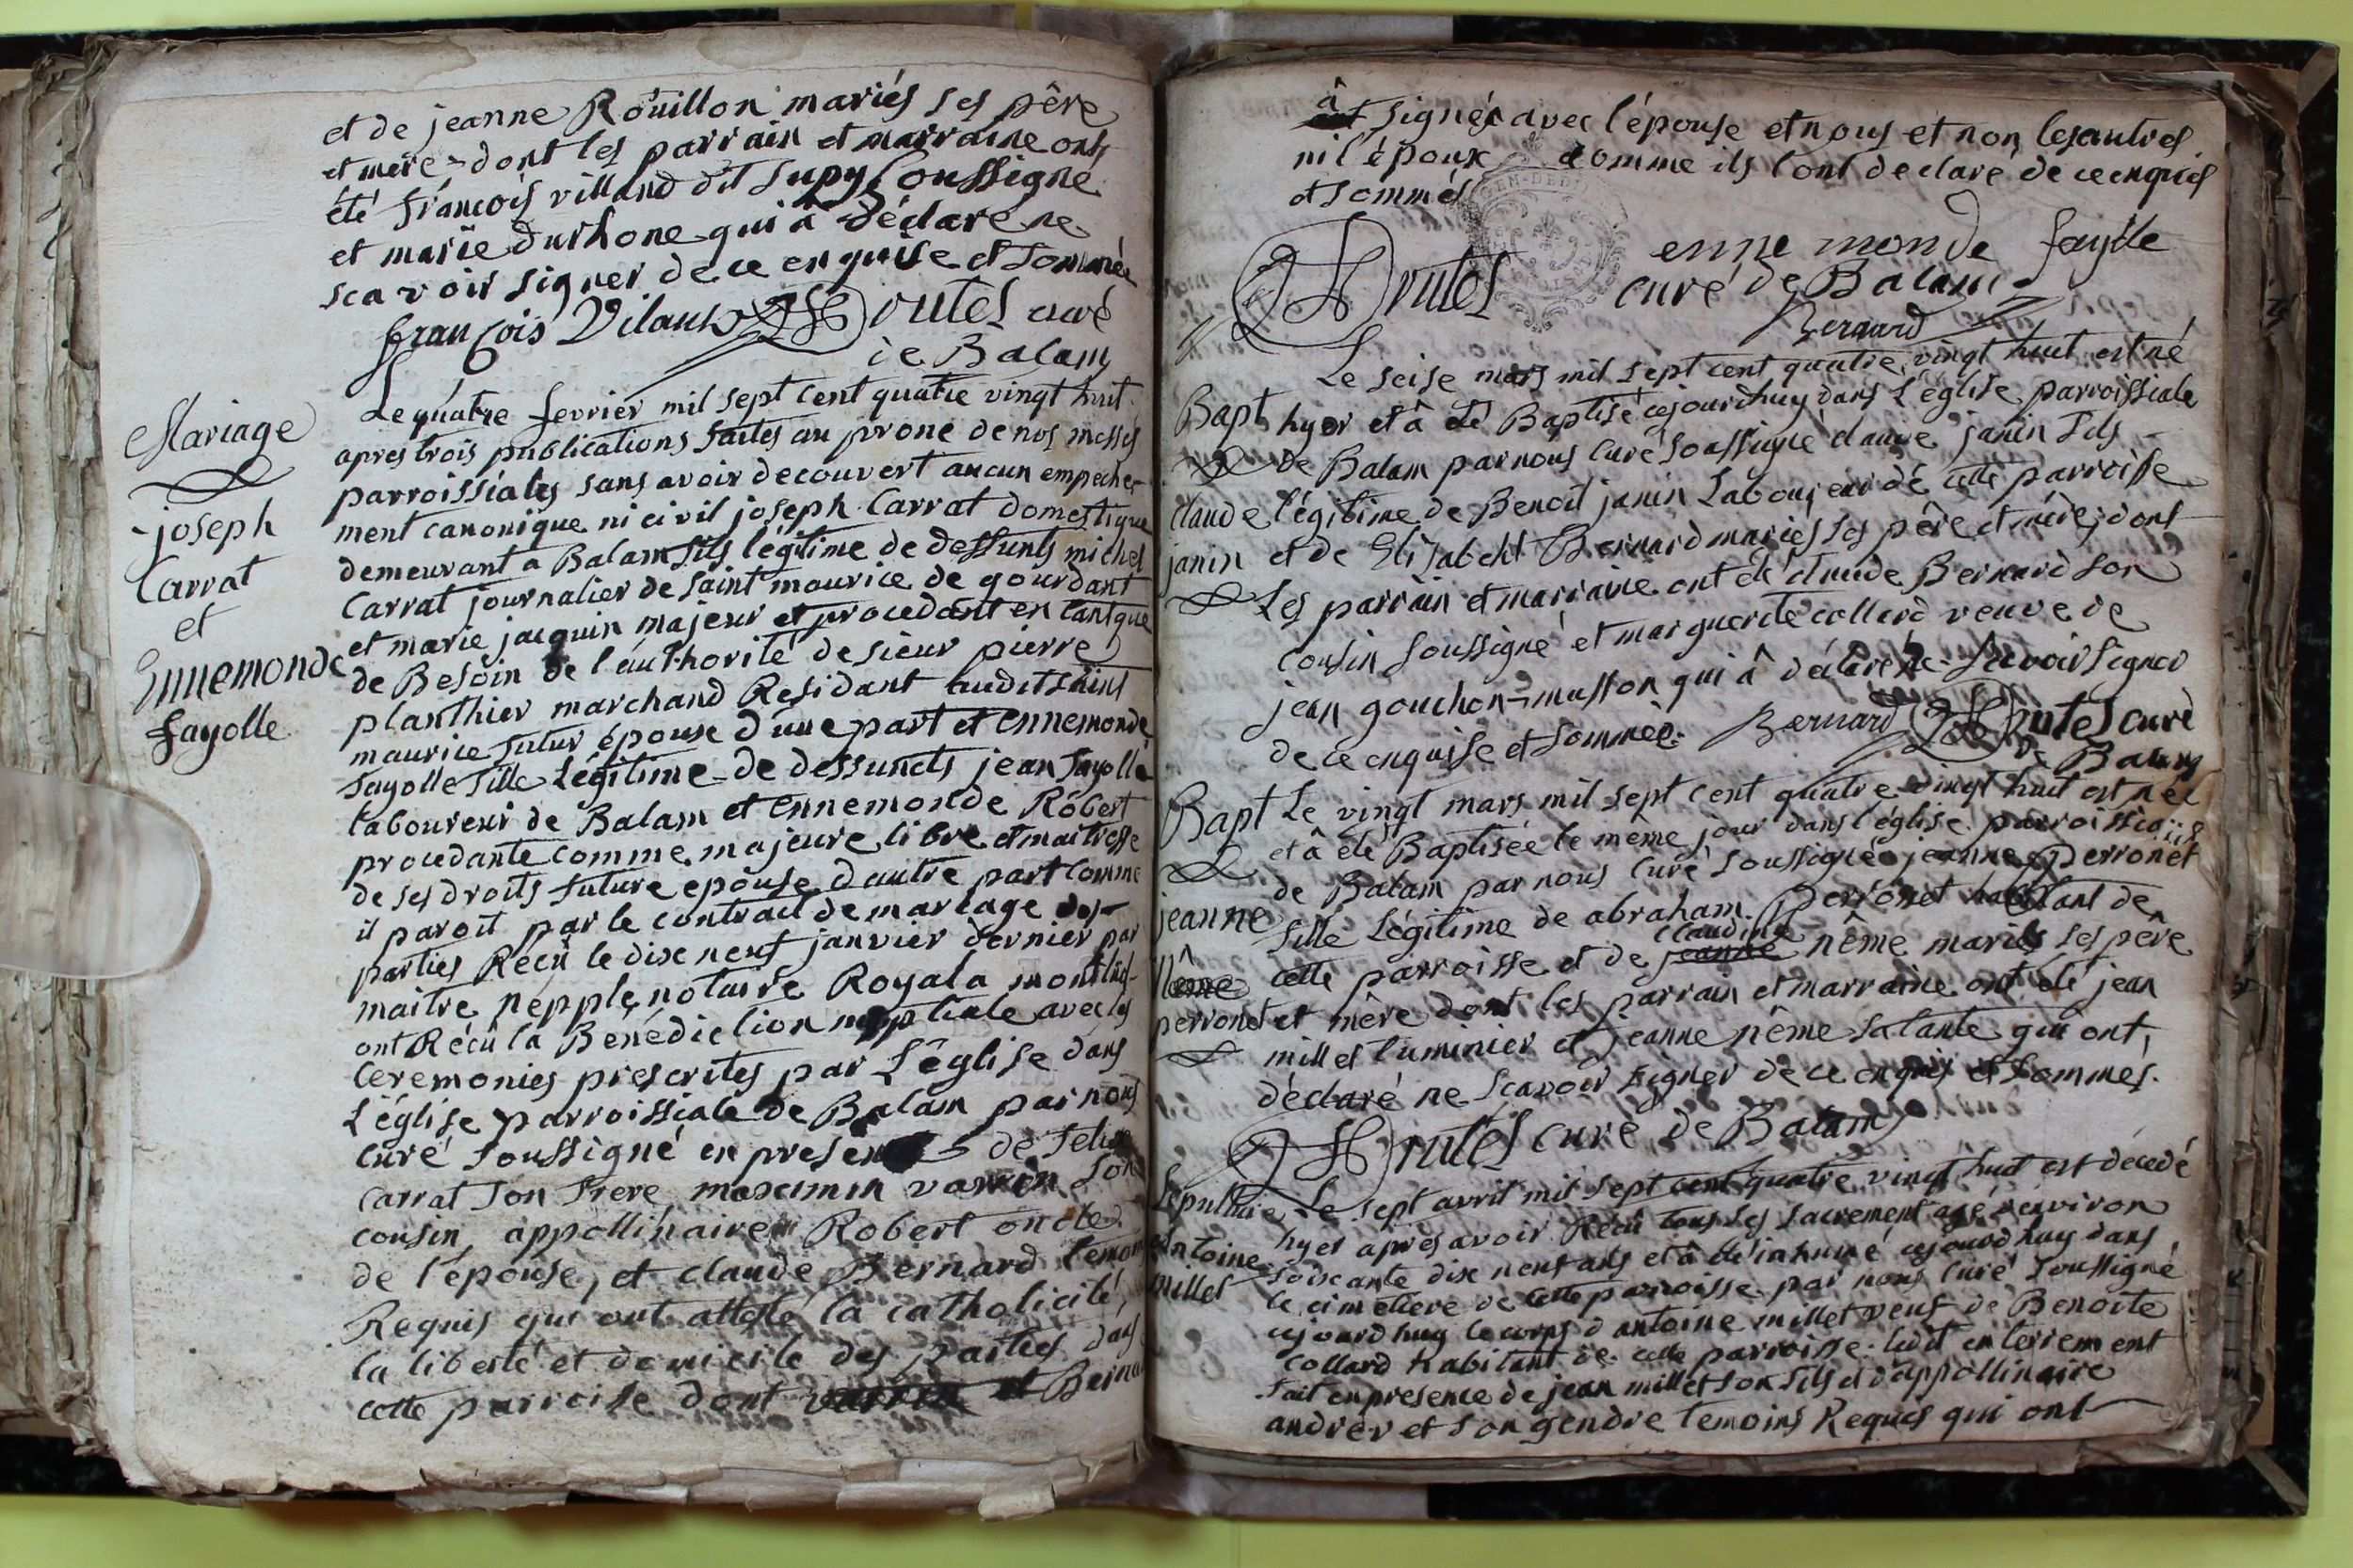 et de jeanne Roüillon mariés ses pêre
et mere dont les parrain et marraine onts
été françois villand dit Supy soussigné
et marie durhone qui à déclaré ne
scavoir signer de ce enquise et sommée
françois Vilau Routes curé
de Balam
Mariage
joseph
Carrat
et
Ennemonde
fayolle
Le quatre fevrier mil sept cent quatre vingt huit
apres trois publications faites au prone de nos messes
parroissiales sans avoir decouvert aucun empeche-
ment canonique ni civil joseph Carrat domestique
demeurant a Balam fils légitime de deffunts michel
Carrat journalier de saint maurice de gourdant
et marie jacquin majeur et procedant en tantque
de Besoin de l'authorité de sieur pierre
planthier marchand Residant audit saint
maurice futur épouse d'une part et ennemonde
fayolle fille Légitime de deffuncts jean fayolle
laboureur de Balam et ennemonde Robert
procedante comme majeure libre et maitresse
de ses droits future epouse d'autre part comme
il paroit par le contract de mariage des
parties Reçû le dixe neuf janvier dernier par
maitre nepple notaire Royal a montluel
ont Reçû la Benédiction nuptiale avec les
Ceremonies prescrites par L'église dans
L'église parroissiale de Balam par nous
curé soussigné en presence de felix
carrat son frere maximin varrin son
cousin, appollinaire Robert oncle
de l'épouse, et claude Bernard temoins
Requis qui ont attesté la catholicité,
la liberté et domicile des parties dans
cette parroisse dont et Berna
â
signés avec l'épouse et nous et non les autres
ni l'époux comme ils l'ont declaré de ce enquis
et sommés
enne monde fayolle
Routes curé de Balam
Bernard
Bapt
claude
janin
Le seise mars mil sept cent quatre vingt huit est né
hyer et â été Baptisé cejourdhuy dans L'église parroissiale
de Balam par nous curé soussigné claude janin fils
légitime de Benoit janin Laboureur de cette parroisse
et de Elisabeht Bernard mariés ses pêre et mère, dont
Les parrain et marraine ont été claude Bernard son
cousin soussigné et marguerite collard veuve de
jean gouchon-musson qui â déclaré ne scavoir signer
de ce enquise et sommée. Bernard Routes curé
de Balam
Bapt
jeanne
Nême
perronet
Le vingt mars mil sept cent quatre vingt huit est née
et â été Baptisée le même jour dans l'église parroissialle
de Balam par nous curé soussigné jeanne perronet
fille Légitime de abraham perronet habitant de
claudine
cette parroisse et de jeanne nême mariés ses pêre
et mère dont les parrain et marraine ont été jean
millet luminier et jeanne nême sa tante qui ont
déclaré ne scavoir signer de ce enquis et sommés.
Routes curé de Balam
Sépulture
antoine
millet
Le sept avril mil sept cent quatre vingt huit est décedé
hyer après avoir Reçû tous ses sacrement agé d'environ
soixante dixe neuf ans et â été inhumé cejourdhuy dans
le cimetiere de cette parroisse par nous curé soussigné
cejourdhuy le corps d'antoine millet veuf de Benoite
collard habitant de cette parroisse. ledit enterrement
fait en presence de jean millet son fils et d'appollinaire
andrer et son gendre temoins Requis qui ont